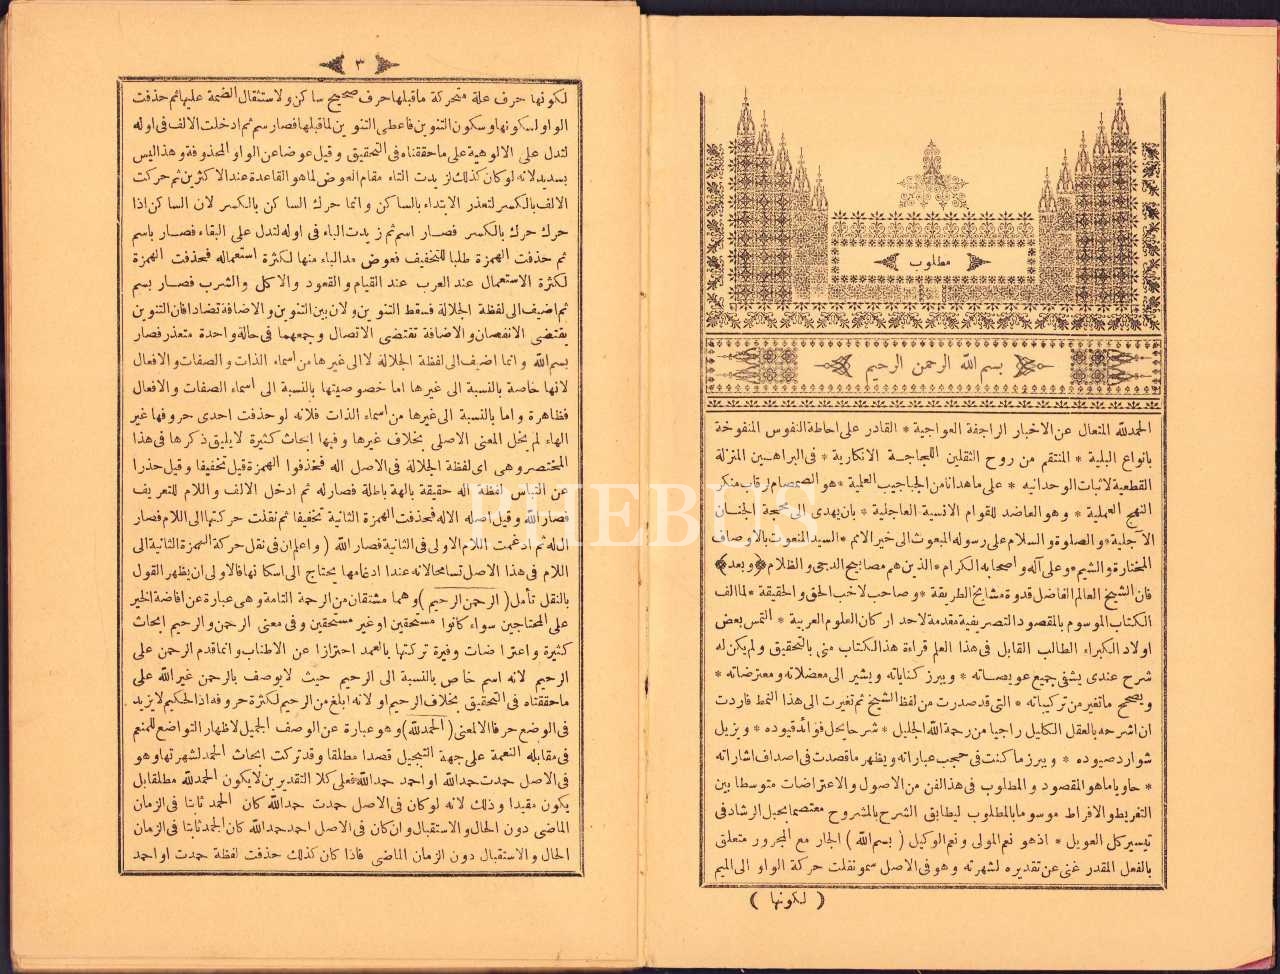 مطلوب
بسم الله الرحمن الرحيم
الحمدلله المتعال عن الاخبار الراجفة العواجية * القادر على احاطة النفوس المنفوخة
بانواع البلية * المنتقم من روح الثقلين اللجاجة الانكارية * فى البراهين المنزلة
القطعية لاثبات الوحدانيه * على ماهدانا من الجباجيب العلية * هو الصمصام لرقاب منكر
النهج العملية * وهو العاضد للقوام الانسية العاجلية * بان يهدى الى محجة الجنان
الآجلية * والصلوة والسلام على رسوله المبعوث الى خير الامم * السيد المنعوت بالاوصاف
المختارة والشيم * وعلى آله واصحابه الكرام * الذين هم مصابيح الدجى والظلام ﴿ وبعد ﴾
فان الشيخ العالم الفاضل قدوة مشايخ الطريقة * وصاحب لاحب الحق والحقيقة * لما الف
الكتاب الموسوم بالمقصود التصريفية مقدمة لاحد اركان العلوم العربية * التمس بعض
اولاد الكبراء الطالب القابل فى هذا العلم قراءة هذا الكتاب منى بالتحقيق ولم يكن له
شرح عندى يشفى جميع عويصاته * ويبرز كناياته ويشير الى معضلاته ومعترضاته *
ويصحح ماتغير من تركيباته * التى قد صدرت من لفظ الشيخ ثم تغيرت الى هذا النمط فاردت
ان اشرحه بالعقل الكليل راجيا من رحمة الله الجليل * شرحا يحل فوائد قيوده * ويزيل
شوارد صيوده * ويبرز ما كنت فى حجب عباراته ويظهر ماقصدت فى اصداف اشاراته
* حاويا ما هو المقصود والمطلوب فى هذا الفن من الاصول والاعتراضات متوسطا بين
التفريط والافراط موسوما بالمطلوب ليطابق الشرح بالمشروح معتصما بحبل الرشاد فى
تيسير كل العويل * اذ هو نعم المولى ونعم الوكيل ( بسم الله ) الجار مع المجرور متعلق
بالفعل المقدر غنى عن تقديره لشهرته وهو فى الاصل سمو نقلت حركة الواو الى الميم
( لكونها )
٣
لكونها حرف علة متحركة ماقبلها حرف صحيح ساكن ولاستثقال الضمة عليها ثم حذفت
الواو لسكونها وسكون التنوين فاعطى التنوين لما قبلها فصار سم ثم ادخلت الالف فى اوله
لتدل على الالوهية على ما حققناه فى التحقيق وقيل عوضا عن الواو المحذوفة وهذا ليس
بسديد لانه لو كان كذلك لزيدت التاء مقام العوض لما هو القاعدة عند الاكثرين ثم حركت
الالف بالكسر لتعذر الابتداء بالساكن وانما حرك الساكن بالكسر لان الساكن اذا
حرك حرك بالكسر فصار اسم ثم زيدت الباء فى اوله لتدل على البقاء فصار باسم
ثم حذفت الهمزة طلبا للتخفيف فعوض مد الباء منها لكثرة استعماله فحذفت الهمزة
لكثرة الاستعمال عند العرب عند القيام والقعود والاكل والشرب فصار بسم
ثم اضيف الى لفظة الجلالة فسقط التنوين ولان بين التنوين والاضافة تضادا فان التنوين
يقتضى الانفصان والاضافة تقتضى الاتصال وجمعهما فى حالة واحدة متعذر فصار
بسم الله وانما اضيف الى لفظة الجلالة لا الى غيرها من اسماء الذات والصفات والافعال
لانها خاصة بالنسبة الى غيرها اما خصوصيتها بالنسبة الى اسماء الصفات والافعال
فظاهرة واما بالنسبة الى غيرها من اسماء الذات فلانه لو حذفت احدى حروفها غير
الهاء لم يخل المعنى الاصلى بخلاف غيرها وفيها ابحاث كثيرة لا يليق ذكرها فى هذا
المختصر وهى اى لفظة الجلالة فى الاصل اله فحذفوا الهمزة قيل تخفيفا وقيل حذرا
عن التباس لفظة اله حقيقة بالهة باطلة فصار له ثم ادخل الالف واللام للتعريف
فصار الله وقيل اصله الاله فحذفت الهمزة الثانية تخفيفا ثم نقلت حركتها الى اللام فصار
ال له ثم ادغمت اللام الاولى فى الثانية فصار الله ( واعلم ان فى نقل حركة الهمزة الثانية الى
اللام فى هذا الاصل تسامحا لانه عند ادغامها يحتاج الى اسكانها فالاولى ان يظهر القول
بالنقل تأمل ( الرحمن الرحيم ) وهما مشتقان من الرحمة التامة وهى عبارة عن افاضة الخير
على المحتاجين سواء كانوا مستحقين او غير مستحقين وفى معنى الرحمن والرحيم ابحاث
كثيرة واعتراضات وفيرة تركتها بالعمد احترازا عن الاطناب وانما قدم الرحمن على
الرحيم لانه اسم خاص بالنسبة الى الرحيم حيث لا يوصف بالرحمن غير الله على
ما حققناه فى التحقيق بخلاف الرحيم او لانه ابلغ من الرحيم لكثرة حروفه اذ الحكيم لا يزيد
فى الوضع حرفا الا لمعنى ( الحمد لله ) وهو عبارة عن الوصف الجميل لاظهار التواضع للمنعم
فى مقابله النعمة على جهة التبجيل قصدا مطلقا وقد تركت ابحاث الحمد لشهرتها وهو
فى الاصل حمدت حمد الله او احمد حمد الله فعلى كلا التقديرين لا يكون الحمد لله مطلقا بل
يكون مقيدا وذلك لانه لو كان فى الاصل حمدت حمد الله كان الحمد ثابتا فى الزمان
الماضى دون الحال والاستقبال وان كان فى الاصل احمد حمد الله كان الحمد ثابتا فى الزمان
الحال والاستقبال دون الزمان الماضى فاذا كان كذلك حذفت لفظة حمدت او احمد
PHEBUS